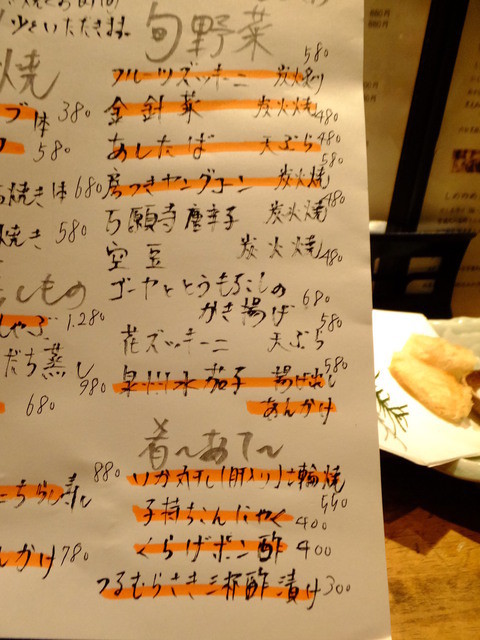 少々いただきます。
旬野菜
フルーツズッキーニ 炭火炙り 580
金針菜 炭火焼 480
あしたば 天ぷら 480
房つきヤングコーン 炭火焼 580
万願寺唐辛子 炭火焼 480
空豆 炭火焼 480
ゴーヤととうもろこしの
かき揚げ 680
花ズッキーニ 天ぷら 580
泉州水茄子 揚げ出し 580
あんかけ
肴〜あて〜
いか丸干し(肝入り) 輪焼 550
子持ちこんにゃく 400
くらげポン酢 400
つるむらさき三杯酢漬け 300
焼
380
580
焼き 体 680
焼き 580
しもの
しゃぶ 1,280
だち蒸し 980
680
ちらし寿し 880
んかけ 780